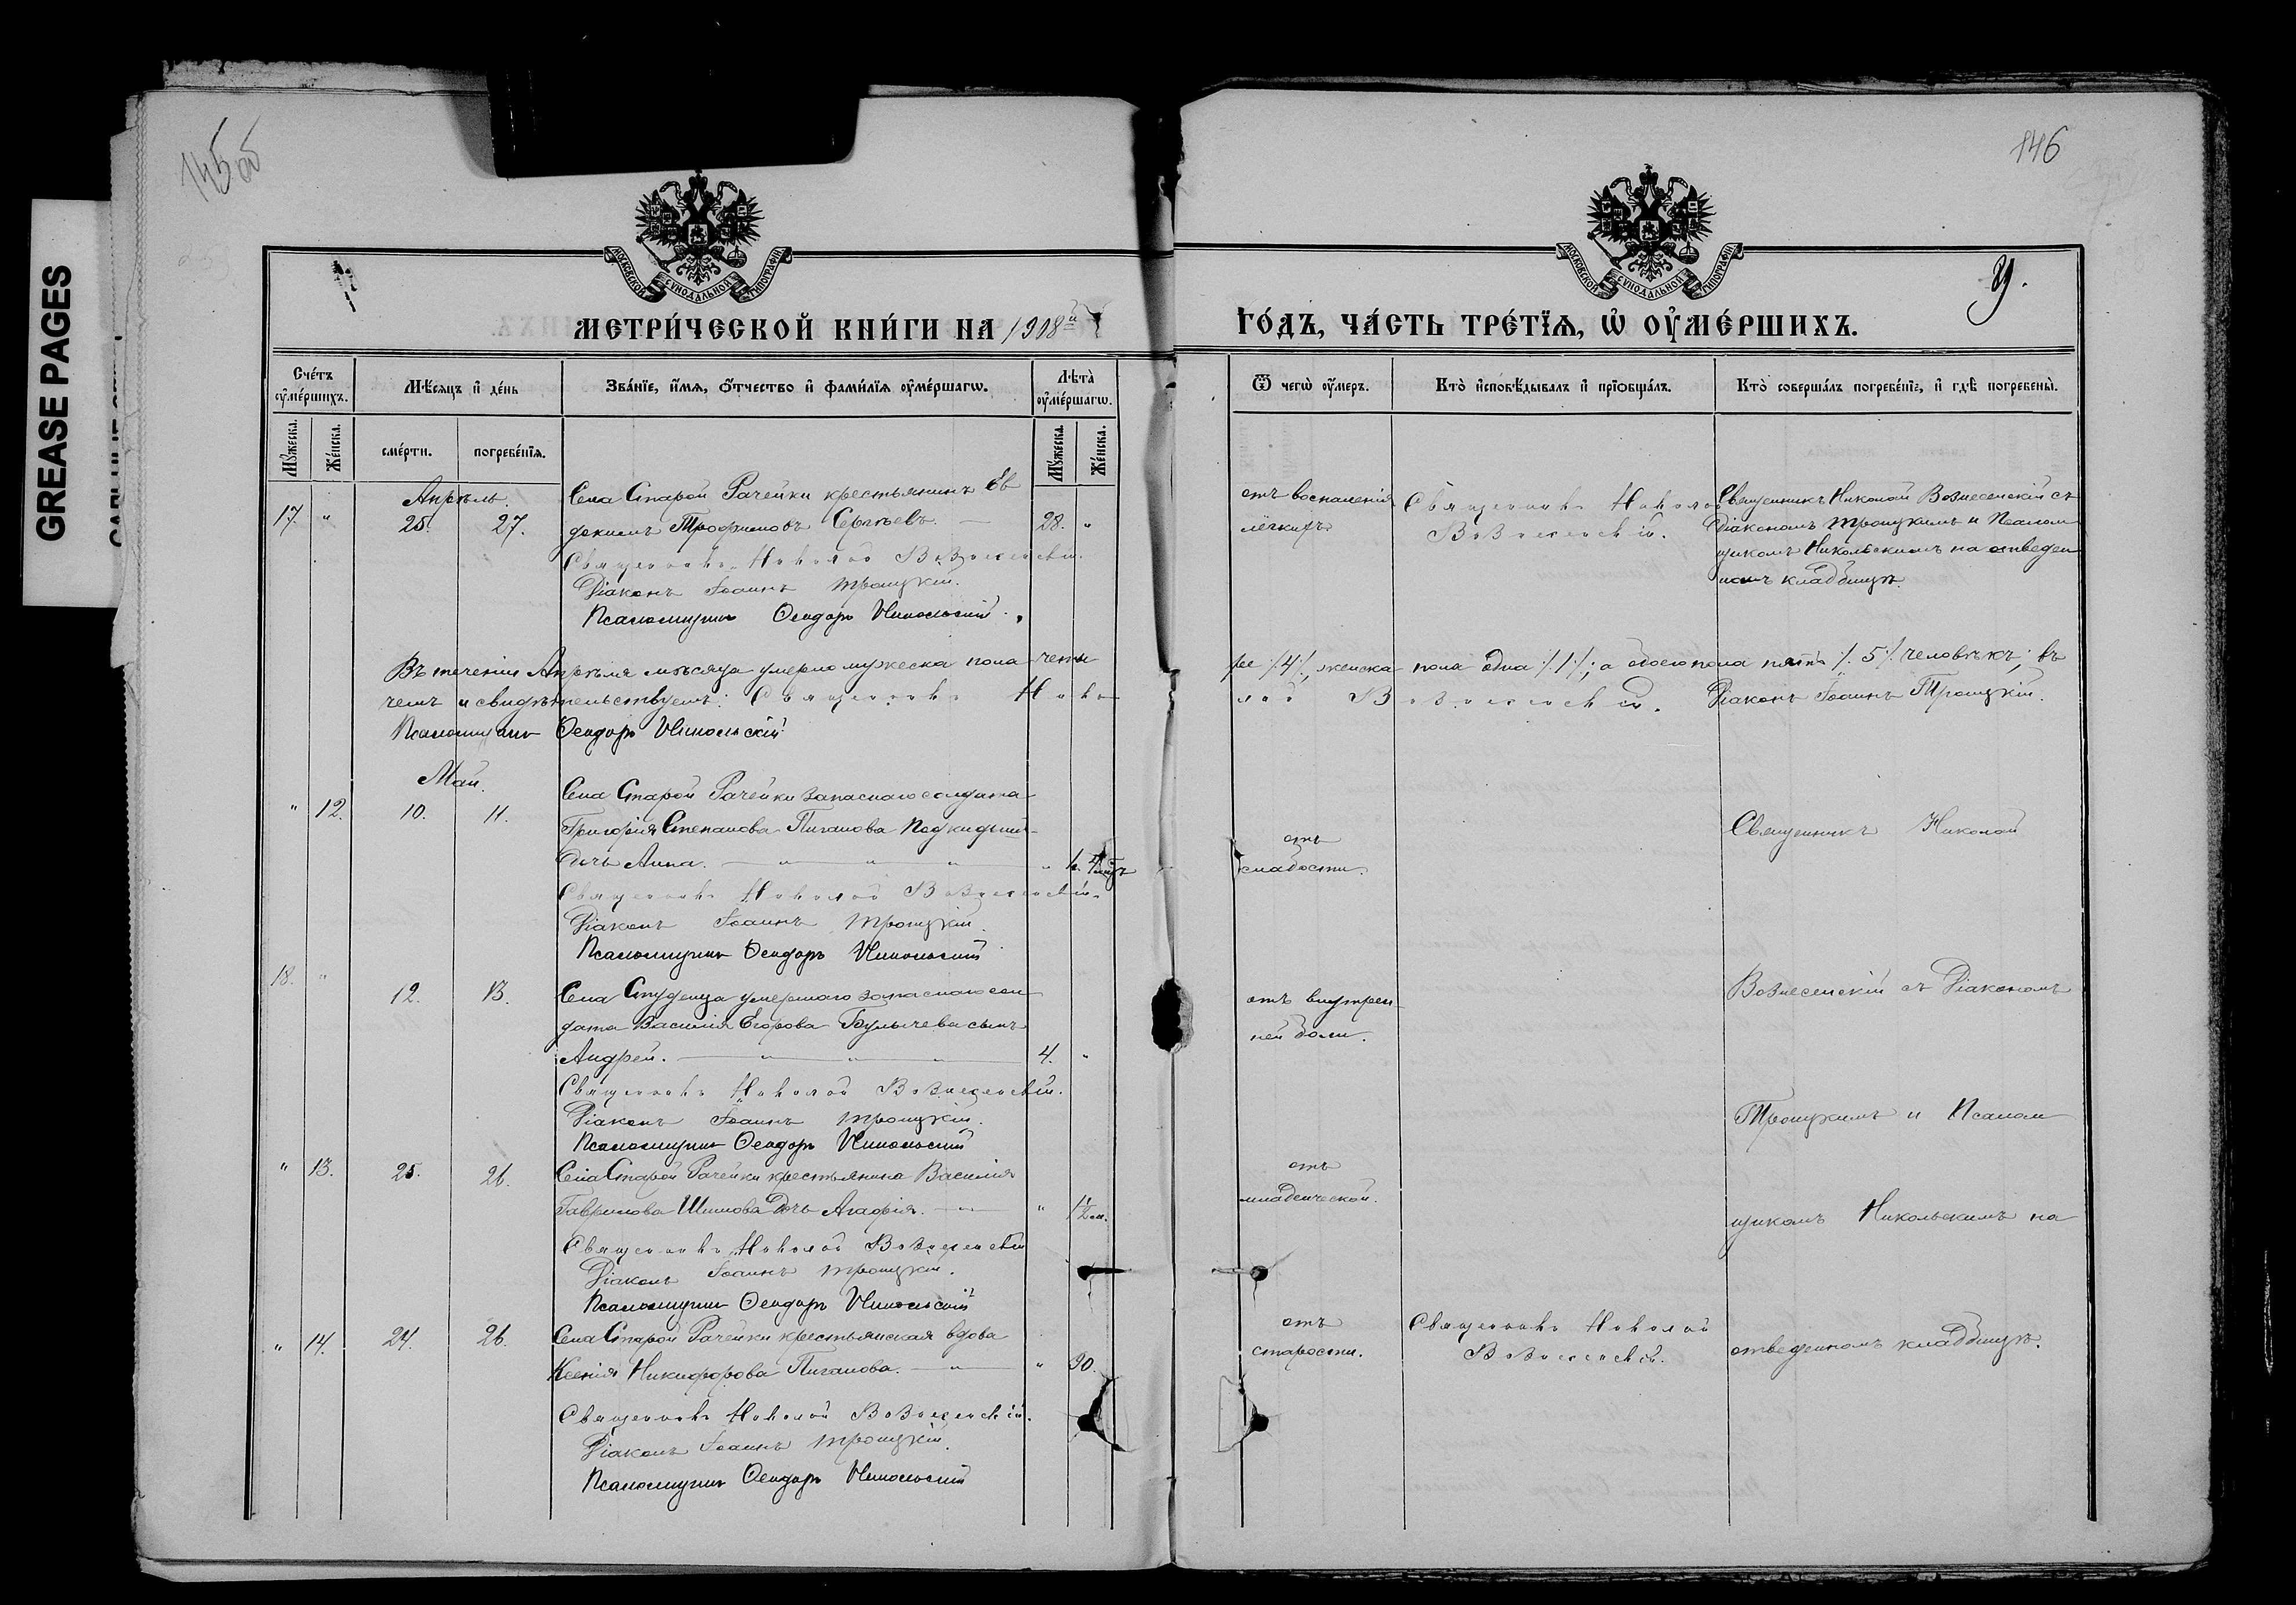 145об
146
GREASE PAGES
МОСКОВСКОЙ СУНОДАЛЬНОЙ ТИПОГРАФІИ
МОСКОВСКОЙ СУНОДАЛЬНОЙ ТИПОГРАФІИ
9.
МЕТРИ́ЧЕСКОЙ КНИ́ГИ НА 1908й
ГО́ДЪ, ЧА́СТЬ ТРЕ́ТЇѦ, Ѡ ОУ҆МЕ́РШИХЪ.
Сче́тъ оу҆ме́ршихъ.
Мѣ́сѧцъ и҆ де́нь
Зва́нїе, и҆́мѧ, ѻ҆́тчество и҆ фами́лїѧ оу҆ме́ршагѡ.
Лѣта̀ оу҆ме́ршагѡ.
Ѿ чегѡ̀ оу҆́меръ.
Кто̀ и҆сповѣ́дывалъ и҆ прїѡбща́лъ.
Кто̀ соверша́лъ погребе́нїе, и҆ гдѣ̀ погребены̀.
Мꙋ́жеска.
Же́нска.
сме́рти.
погребе́нїѧ.
Мꙋ́жеска.
Же́нска.
Апрѣль.
17. " 25. 27.
Села Старой Рачейки крестьянинъ Ев
докимъ Трофимовъ Сергѣевъ. 28. "
Священникъ Николай Вознесенскій.
Діаконъ Іоаннъ Троицкій.
Псаломщикъ Ѳеодоръ Никольскій.
отъ воспаленія
легкихъ.
Священникъ Николай
Вознесенскій.
Священникъ Николай Вознесенскій съ
Діакономъ Троицкимъ и Псалом
щикомъ Никольскимъ на отведен
номъ кладбищѣ.
Въ теченіи Апрѣля мѣсяца умерло мужеска пола четы
ре /4/, женска пола одна /1/; а обоего пола пять /5/ человѣкъ; въ
чемъ и свидѣтельствуемъ: Священникъ Нико
лай Вознесенскій. Діаконъ Іоаннъ Троицкій.
Псаломщикъ Ѳеодоръ Никольскій
Май.
" 12. 10. 11.
Села Старой Рачейки запаснаго солдата
Григорія Степанова Пиганова
дочь Анна.
Священникъ Николай Вознесенскій.
Діаконъ Іоаннъ Троицкій.
Псаломщикъ Ѳеодоръ Никольскій
отъ
слабости.
Священникъ Николай
18. " 12. 13.
Села Студенца умершаго запаснаго сол
дата Василія Егорова Булычева сынъ
Андрей. 4. "
Священникъ Николай Вознесенскій.
Діаконъ Іоаннъ Троицкій.
Псаломщикъ Ѳеодоръ Никольскій
отъ внутрен
ней боли.
Вознесенскій съ Діакономъ
Троицкимъ и Псалом
" 13. 25. 26.
Села Старой Рачейки крестьянина Василія
Гаврилова Шишова дочь Агафія. " 1½ м.
Священникъ Николай Вознесенскій
Діаконъ Іоаннъ Троицкій.
Псаломщикъ Ѳеодоръ Никольскій
отъ
младенческой.
щикомъ Никольскимъ на
" 14. 24. 26.
Села Старой Рачейки крестьянская вдова
Ксенія Никифорова Пиганова. " 90.
Священникъ Николай Вознесенскій.
Діаконъ Іоаннъ Троицкій.
Псаломщикъ Ѳеодоръ Никольскій
отъ
старости.
Священникъ Николай
Вознесенскій.
отведенномъ кладбищѣ.